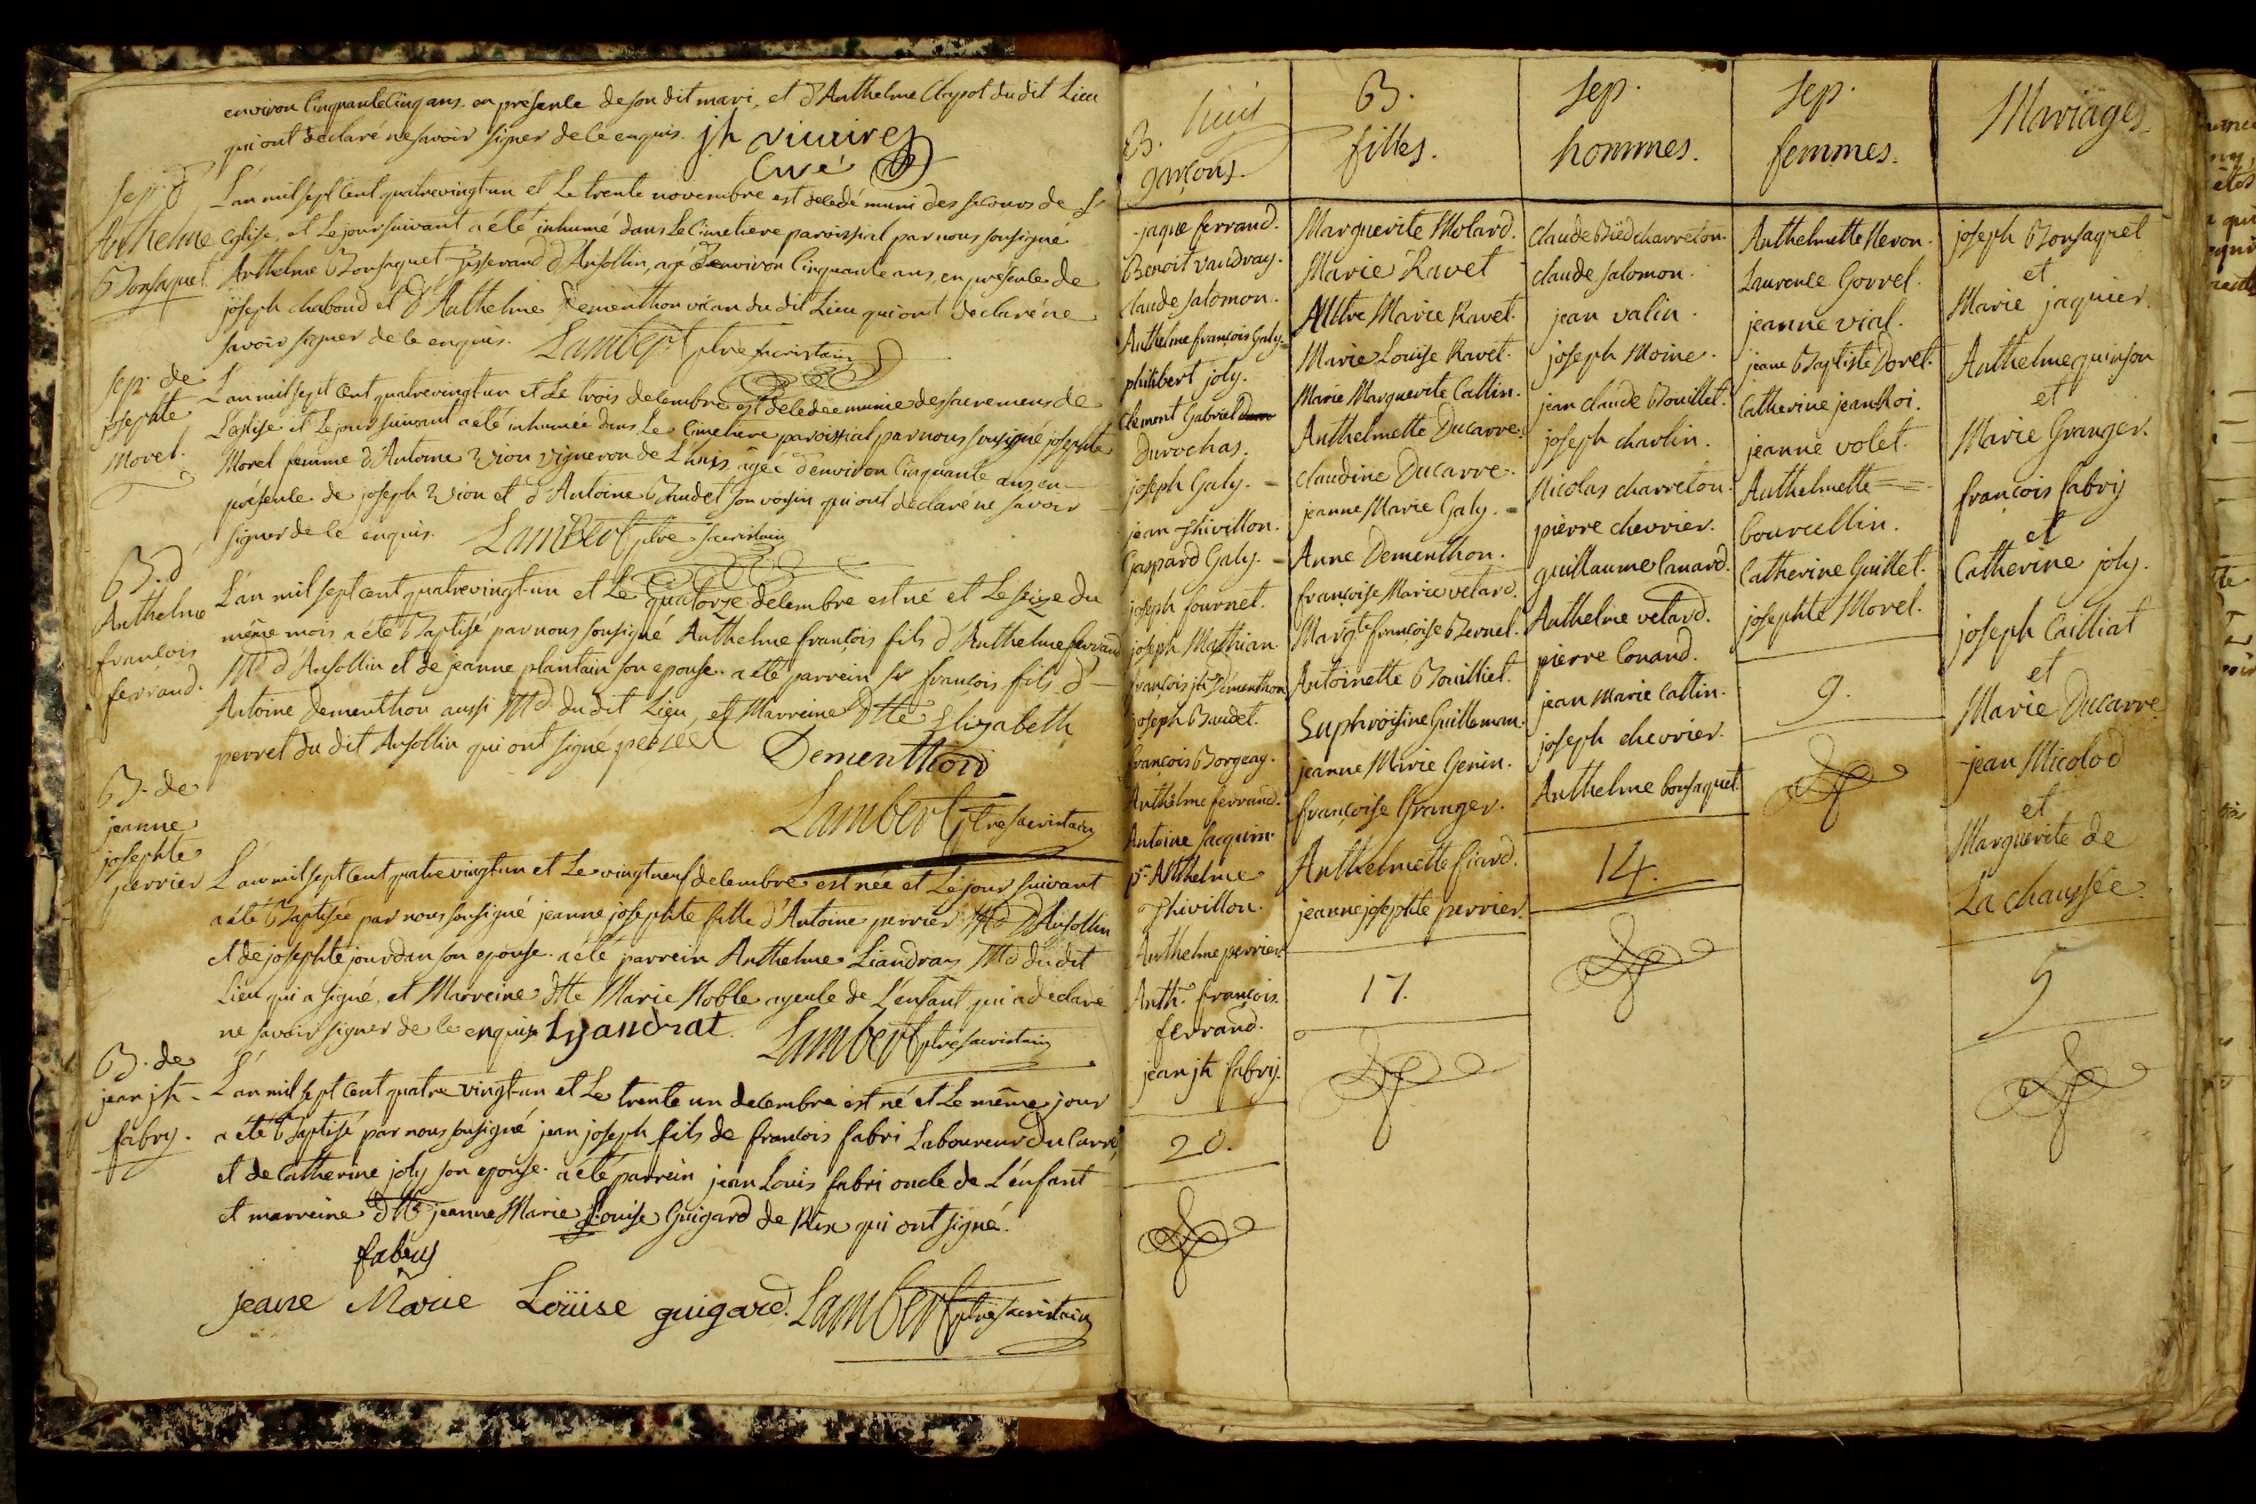 environ Cinquante Cinq ans. en presence de son dit mari, et d'Anthelme Claypot du dit Lieu
qui ont declaré ne savoir signer de ce enquis. jh vicaire
Curé
Sep. d'
Anthelme
Bonsaquet.
L'an mil sept Cent quatre vingt-un et Le trente novembre est decedé muni des secours de Ste
Eglise, et Le jour suivant a été inhumé dans Le Cimetiere paroissial par nous soussigné
Anthelme Bonsaquet Tisserand d'Ansollin, agé d'environ Cinquante ans, en presence de
joseph chaboud et d'Anthelme Dementhon du dit Lieu qui ont declaré ne
savoir signer de ce enquis. Lambert ptre sacristain
Sep. de
josephte
Morel.
L'an mil sept Cent quatre vingt-un et Le trois decembre est decedée munie des sacremens de
L'eglise et Le jour suivant a été inhumée dans Le Cimetiere paroissial par nous soussigné josephte
Morel femme d'Antoine Vion vigneron de Lhuis agée d'environ Cinquante ans en
présence de joseph Vion et d'Antoine Baudet son voisin qui ont déclaré ne savoir
signer de ce enquis. Lambert ptre Sacristain
B. d'
Anthelme
françois
ferrand.
L'an mil sept cent quatre vingt-un et Le quatorze decembre est né et Le seize du
même mois a été Baptisé par nous soussigné Anthelme françois fils d'Anthelme ferrand
Md d'Ansollin et de jeanne plantain son epouse. a été parrein Sr françois fils d'
Antoine Dementhon aussi Md du dit Lieu, et Marreine Dlle Elizabeth
perret du dit Ansollin qui ont signé perret Dementhon
Lambert ptre sacristain
B. de
jeanne
josephte
perrier
L'an mil sept Cent quatre vingt-un et Le vingt neuf decembre est née et Le jour suivant
a été Baptisée par nous soussigné jeanne josephte fille d'Antoine perrier Md d'Ansollin
et de josephte jourdan son epouse. a été parrein Anthelme Liandras Md du dit
Lieu qui a signé, et Marreine dlle Marie Noble ayeule de L'enfant qui a déclaré
ne savoir signer de ce enquise Lyandrat. Lambert ptre sacristain
B. de
jean jh
fabry.
L'an mil sept cent quatre vingt-un et Le trente un decembre est né et Le même jour
a été Baptisé par nous soussigné jean joseph fils de françois fabri Laboureur du Carré,
et de Catherine joly son epouse. a été parrein jean Louis fabri oncle de L'enfant
et marreine Dlle jeanne Marie Louise Guigard de Rix qui ont signé.
fabry
jeane Marie Loüise guigard. Lambert ptre sacristain
B.
garçons.
jaque ferrand.
Benoit vaudray.
Claude Salomon.
Anthelme françois Galy.
philibert joly.
Clement Gabriel
Durochas.
joseph Galy.
jean Thivillon.
Gaspard Galy.
joseph fournet.
joseph Mathian.
françois jh Démenthon
joseph Baudet.
françois Borgeay.
Anthelme ferrand.
Antoine Jacquin.
pre Anthelme
Thivillon.
Anthelme perrier
Anth. françois
ferrand.
jean jh fabry.
20.
B.
filles.
Marguerite Molard.
Marie Ravet
Autre Marie Ravet.
Marie Loüise Ravet.
Marie Marguerite Cattin.
Anthelmette Ducarre.
Claudine Ducarre.
jeanne Marie Galy.
Anne Dementhon.
françoise Marie vetard.
Margte françoise Bernel.
Antoinette Bouilliet.
Euphroisine Guilleman.
jeanne Marie Genin.
françoise Granger.
Anthelmette fiard.
jeanne josephte perrier.
17.
Sep.
hommes.
Claude Bied charreton.
claude salomon.
jean valin.
joseph Moine.
jean claude Bouillet.
joseph charlin.
Nicolas charreton.
pierre chevrier.
guillaume Canard.
Anthelme vetard.
pierre Conand.
jean Marie Cattin.
joseph chevrier.
Anthelme bonsaquet.
14.
Sep.
femmes.
Anthelmette Neron.
Laurence Gorrel.
jeanne vial.
jeane Baptiste Dovet.
Catherine jean Roi.
jeanne volet.
Anthelmette
Courcellin.
Catherine Guillet.
josephte Morel.
9.
Mariages
joseph Bonsaquet
et
Marie jaquier.
Anthelme guinson
et
Marie Granger.
françois fabry
et
Catherine joly.
joseph Cailliat
et
Marie Ducarre
jean Micolod
et
Marguerite de
La chaussée.
5